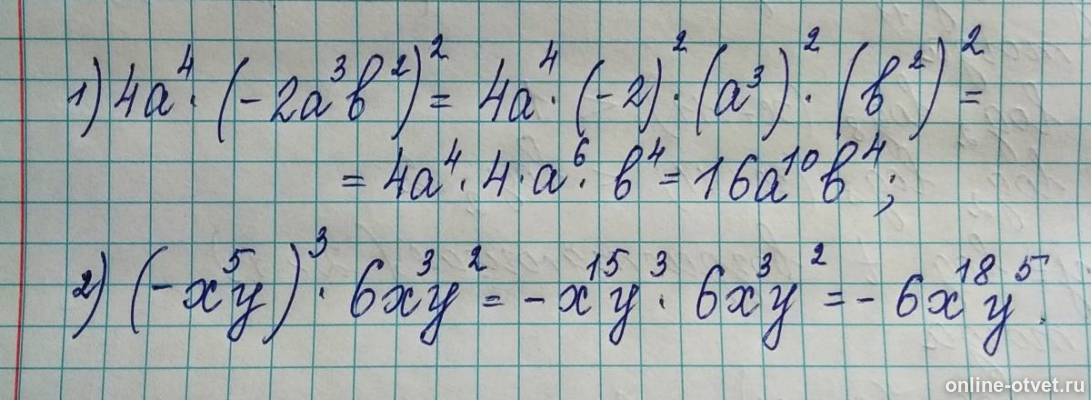 1) 4a⁴ · (-2a³b²)² = 4a⁴ · (-2)² · (a³)² · (b²)² =
= 4a⁴ · 4 · a⁶ · b⁴ = 16a¹⁰b⁴;
2) (-x⁵y)³ · 6x³y² = -x¹⁵y³ · 6x³y² = -6x¹⁸y⁵.
online-otvet.ru